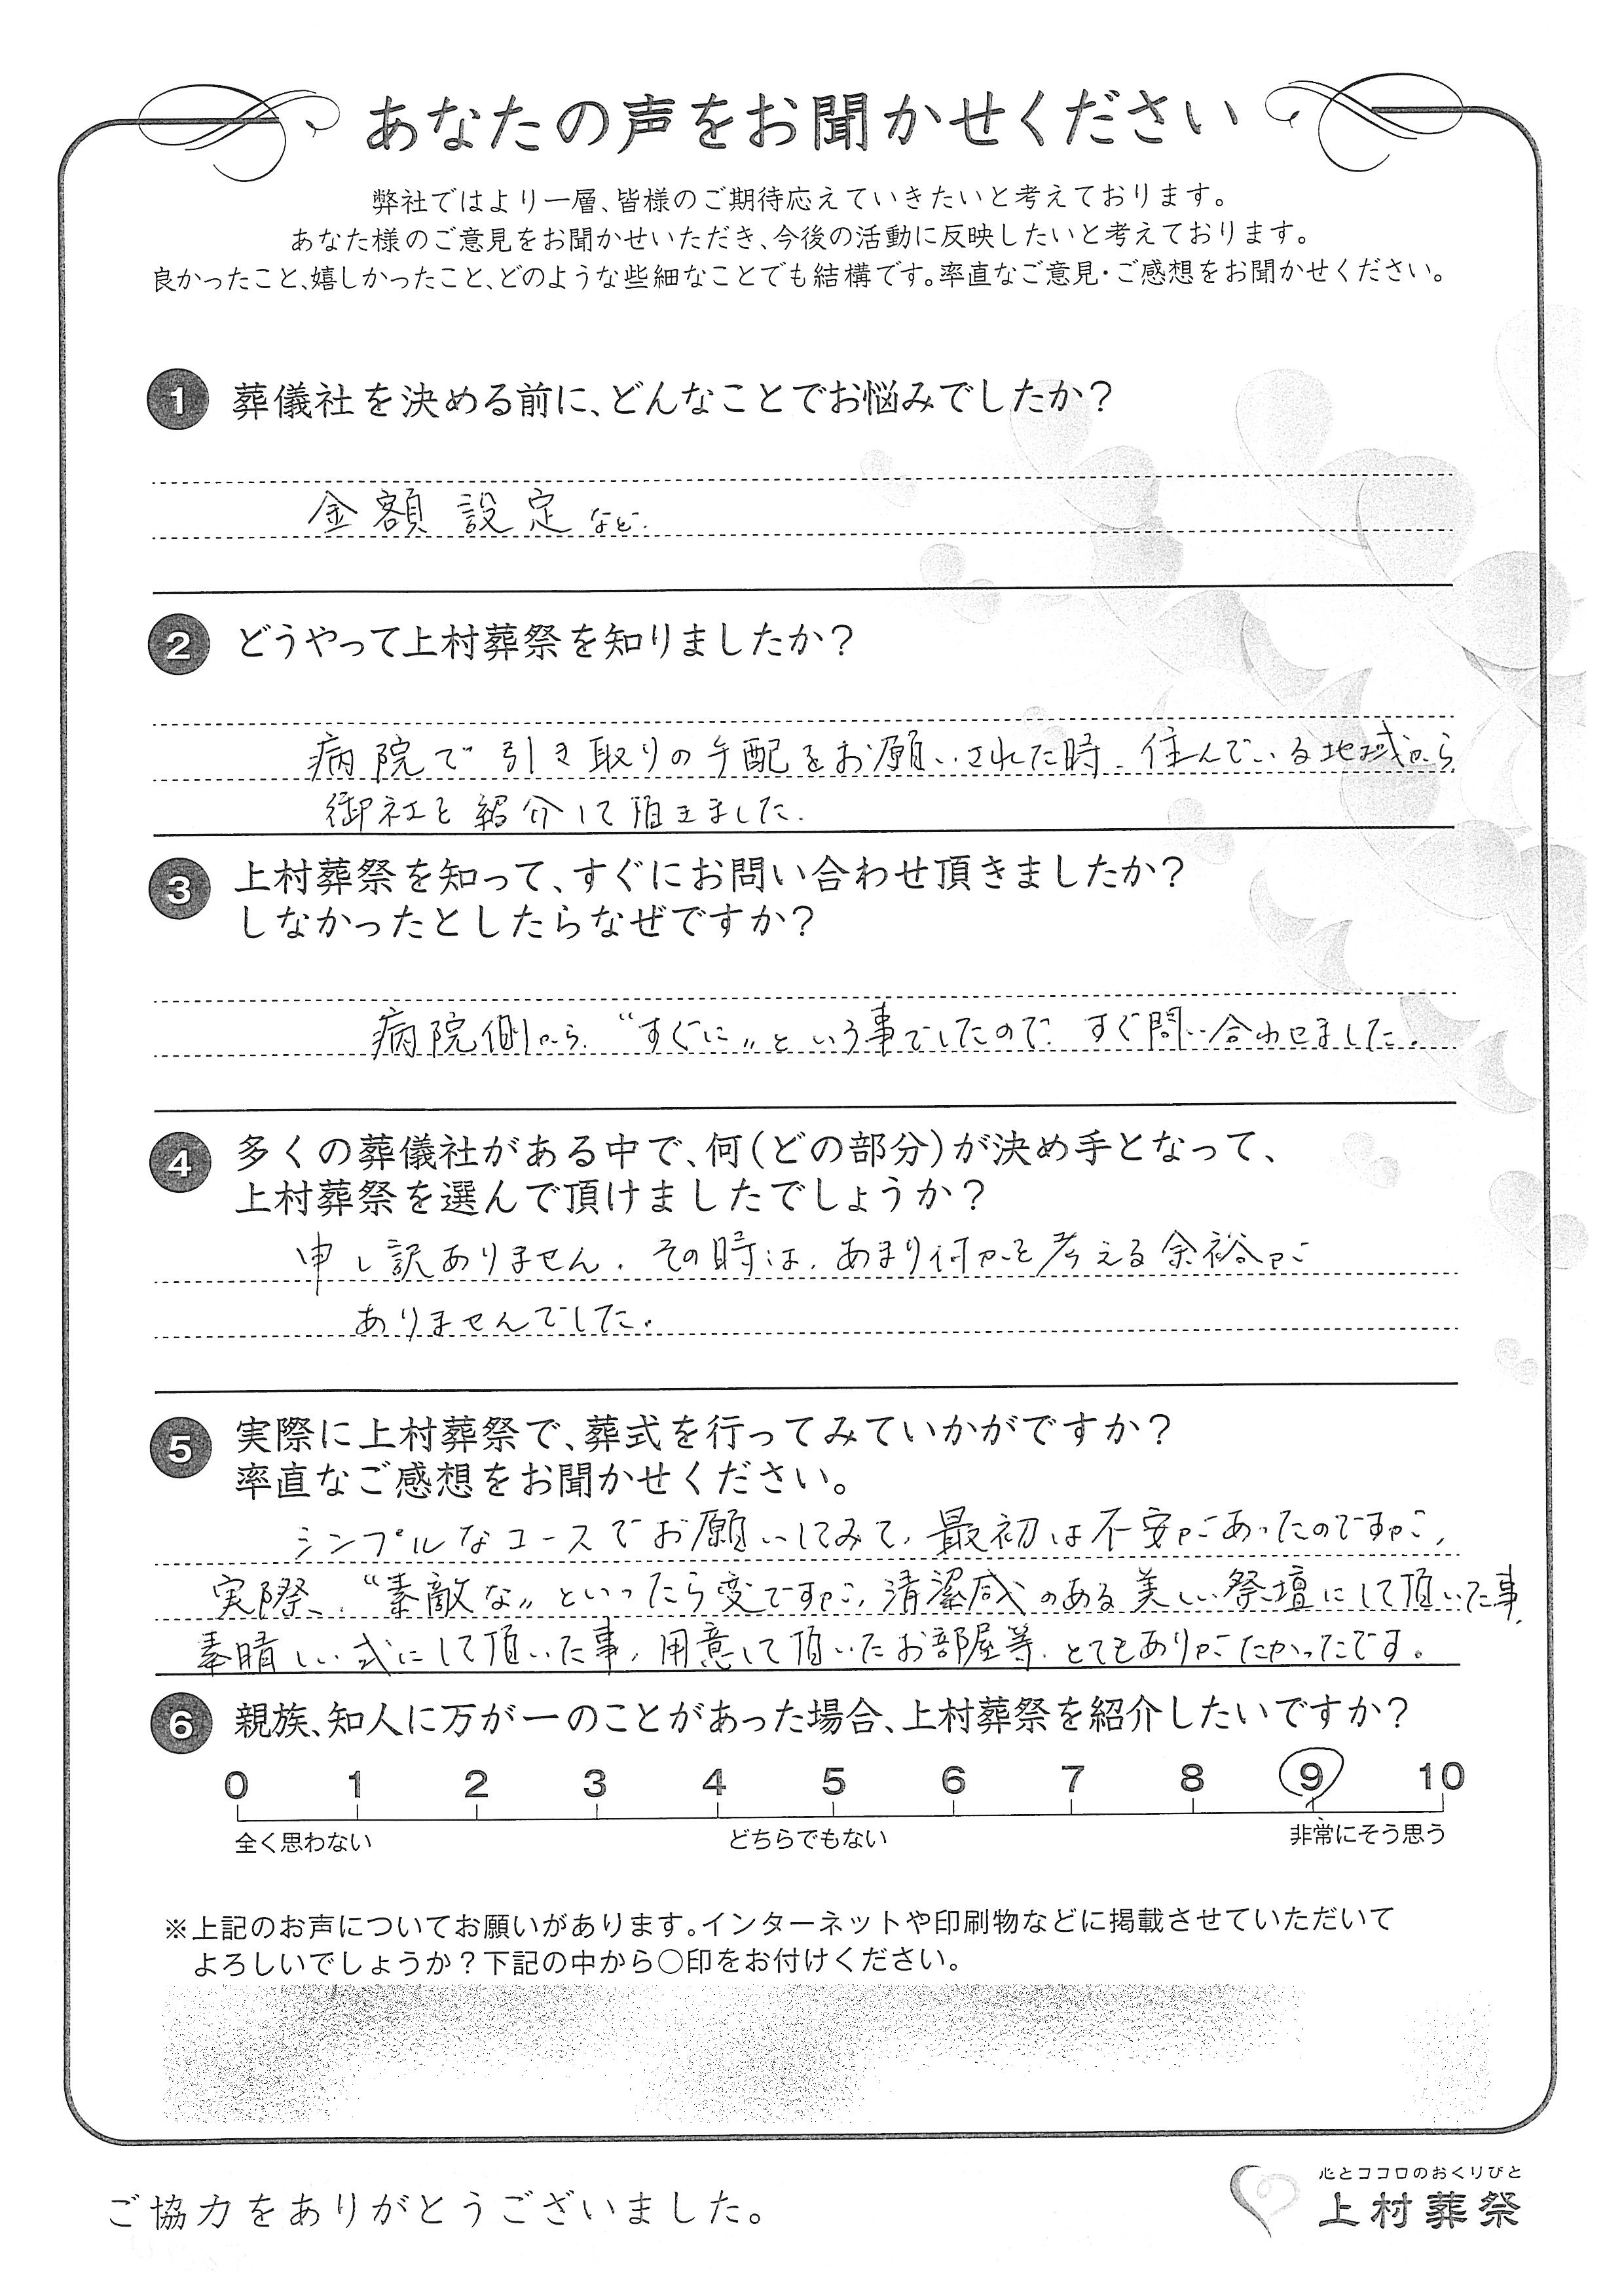 あなたの声をお聞かせください
弊社ではより一層、皆様のご期待応えていきたいと考えております。
あなた様のご意見をお聞かせいただき、今後の活動に反映したいと考えております。
良かったこと、嬉しかったこと、どのような些細なことでも結構です。率直なご意見・ご感想をお聞かせください。
1 葬儀社を決める前に、どんなことでお悩みでしたか?
金額設定など.
2 どうやって上村葬祭を知りましたか?
病院で引き取りの手配をお願いされた時、住んでいる地域から
御社を紹介して頂きました.
3 上村葬祭を知って、すぐにお問い合わせ頂きましたか?
しなかったとしたらなぜですか?
病院側から、“すぐに〃という事でしたので、すぐ問い合わせました.
4 多くの葬儀社がある中で、何(どの部分)が決め手となって、
上村葬祭を選んで頂けましたでしょうか?
申し訳ありません. その時は、あまり何かを考える余裕が
ありませんでした.
5 実際に上村葬祭で、葬式を行ってみていかがですか?
率直なご感想をお聞かせください。
シンプルなコースでお願いしてみて、最初は不安があったのですが、
実際、“素敵な〃といったら変ですが、清潔感のある美しい祭壇にして頂いた事、
素晴しい式にして頂いた事、用意して頂いたお部屋等、とてもありがたかったです。
6 親族、知人に万が一のことがあった場合、上村葬祭を紹介したいですか?
0 1 2 3 4 5 6 7 8 9 10
全く思わない どちらでもない 非常にそう思う
※上記のお声についてお願いがあります。インターネットや印刷物などに掲載させていただいて
よろしいでしょうか?下記の中から○印をお付けください。
ご協力をありがとうございました。
心とココロのおくりびと
上村葬祭